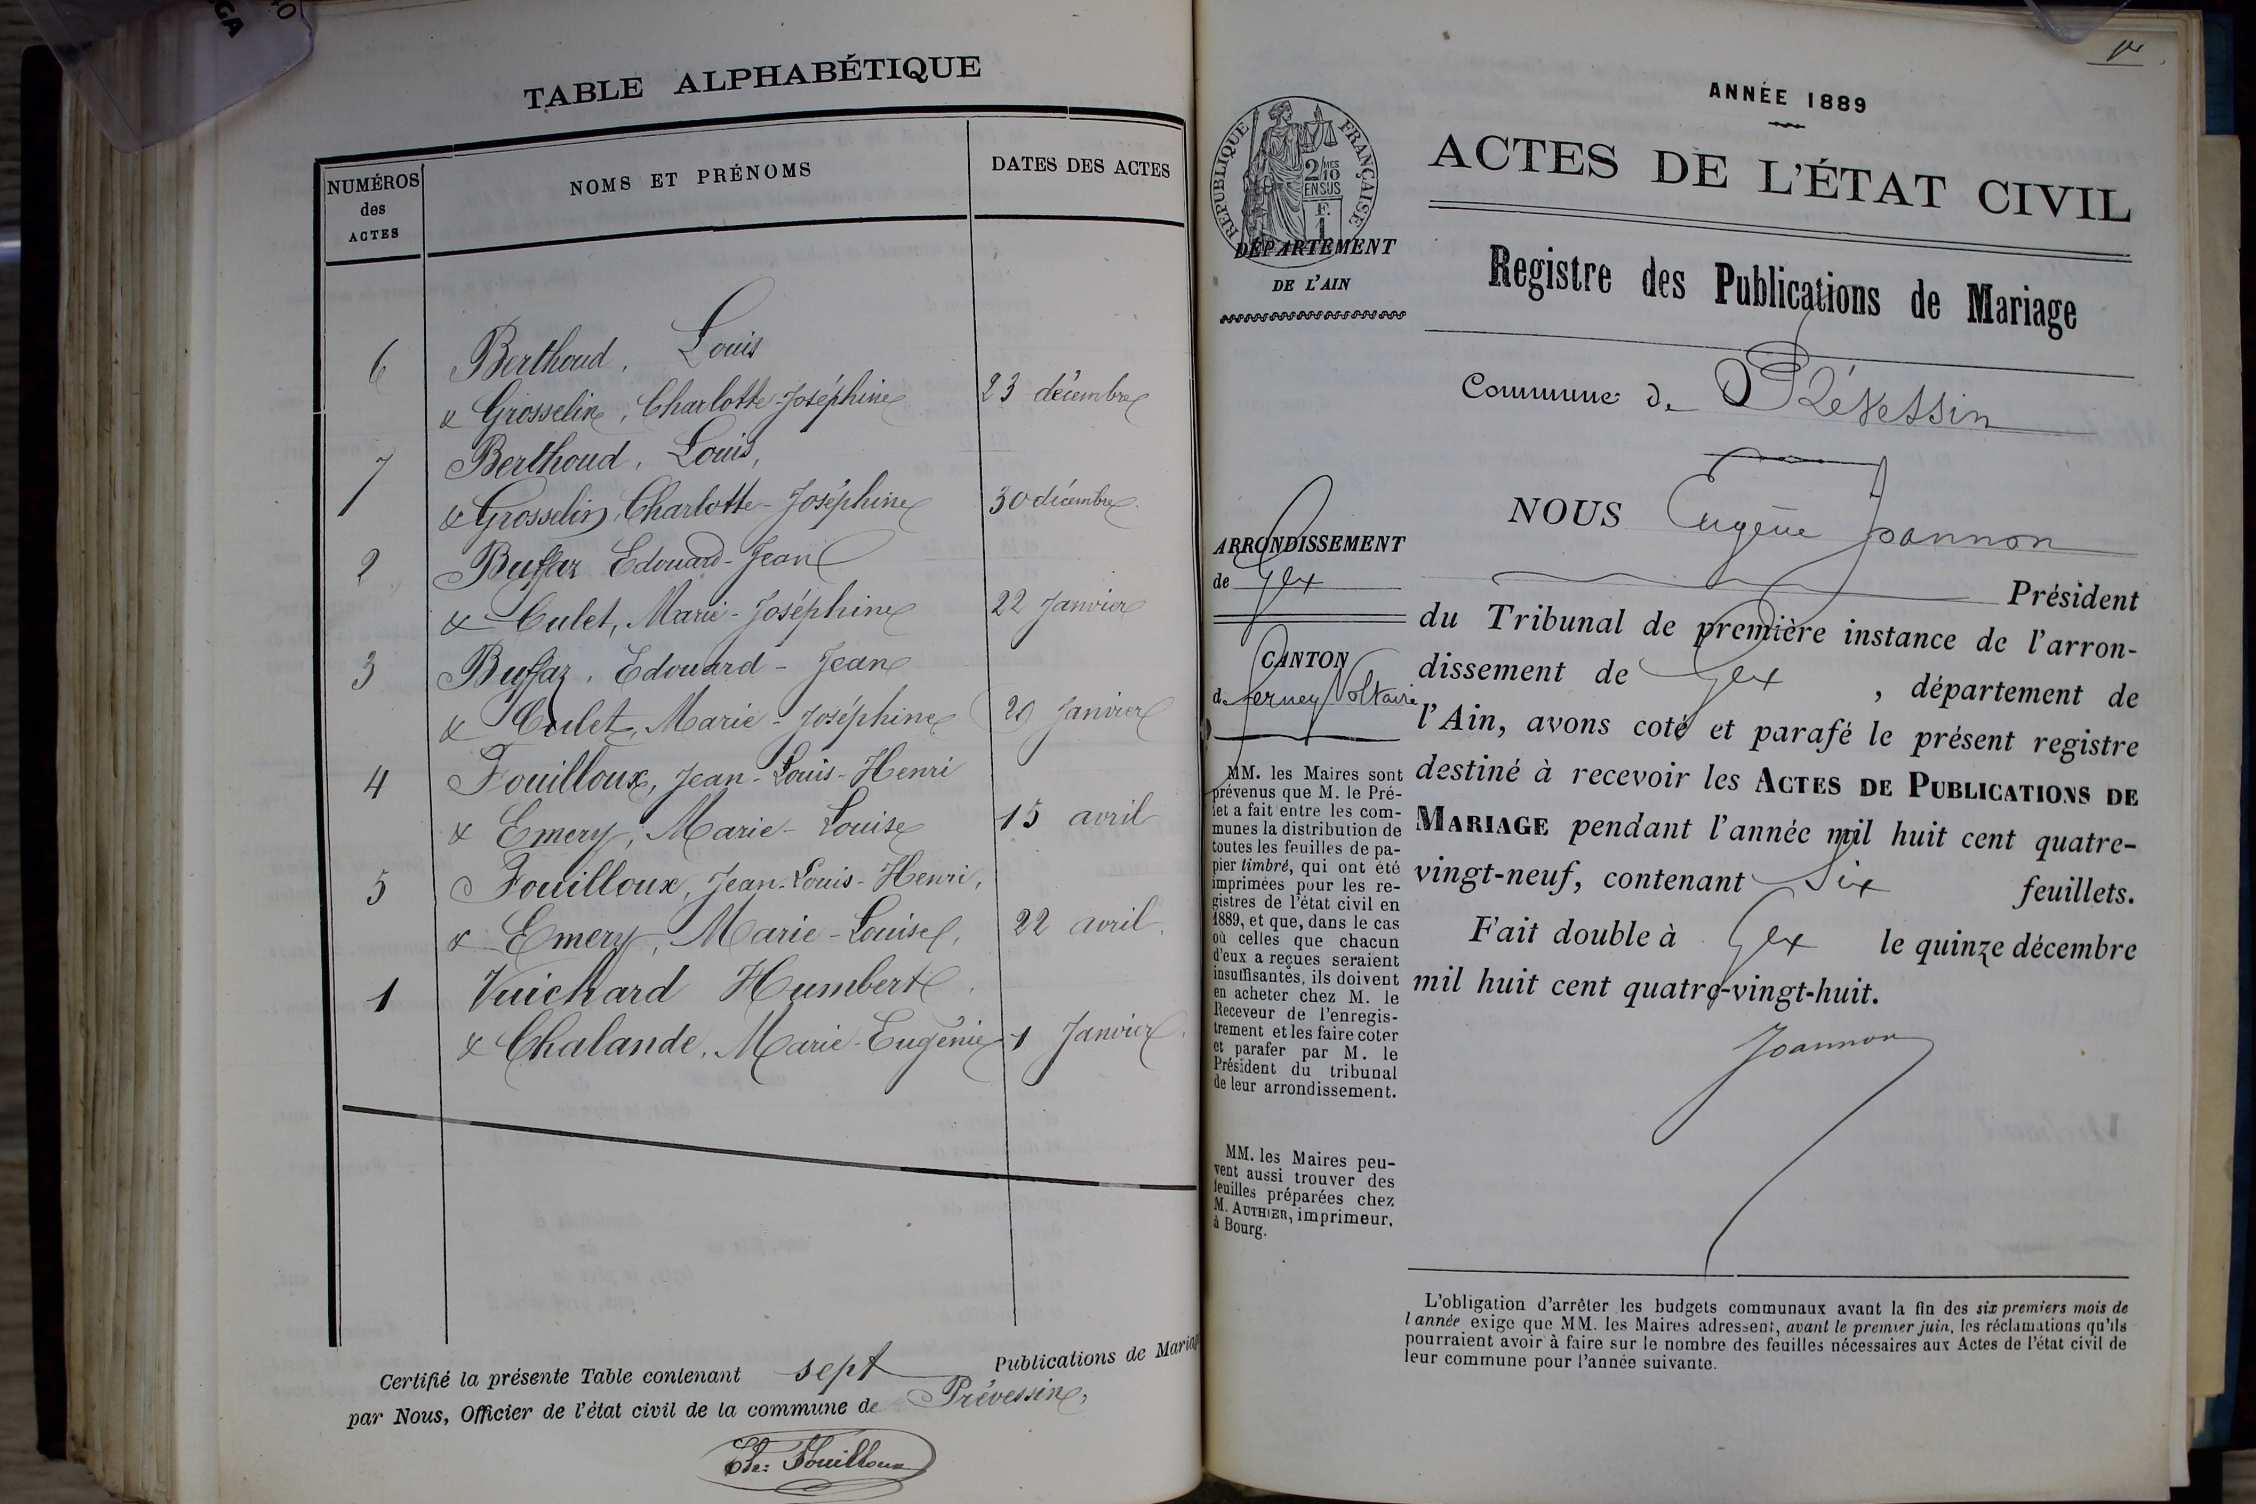 TABLE ALPHABÉTIQUE
NUMÉROS
des
ACTES
NOMS ET PRÉNOMS
DATES DES ACTES
6 Berthoud, Louis
& Grosselin, Charlotte-Joséphine 23 décembre
7 Berthoud, Louis,
& Grosselin, Charlotte-Joséphine 30 décembre
2 Buffaz Edouard-Jean
& Culet, Marie-Joséphine 22 Janvier
3 Buffaz, Edouard-Jean
& Culet, Marie-Joséphine 29 Janvier
4 Fouilloux, Jean-Louis-Henri
& Emery, Marie-Louise 15 avril
5 Fouilloux, Jean-Louis-Henri,
& Emery, Marie-Louise, 22 avril
1 Vuichard Humbert
& Chalande, Marie-Eugénie 1 Janvier
Certifié la présente Table contenant sept Publications de Mariage
par Nous, Officier de l'état civil de la commune de Prévessin,
Fouilloux
1er
ANNÉE 1889
ACTES DE L'ÉTAT CIVIL
Registre des Publications de Mariage
REPUBLIQUE FRANÇAISE
2 MES
10
EN SUS
F.
1
DÉPARTEMENT
DE L'AIN
Commune de Prévessin
NOUS Eugène Joannon
Président
du Tribunal de première instance de l'arron-
dissement de Gex, département de
l'Ain, avons coté et parafé le présent registre
destiné à recevoir les ACTES DE PUBLICATIONS DE
MARIAGE pendant l'année mil huit cent quatre-
vingt-neuf, contenant Six feuillets.
Fait double à Gex le quinze décembre
mil huit cent quatre-vingt-huit.
Joannon
ARRONDISSEMENT
de Gex
CANTON
de Ferney Voltaire
MM. les Maires sont
prévenus que M. le Pré-
fet a fait entre les com-
munes la distribution de
toutes les feuilles de pa-
pier timbré, qui ont été
imprimées pour les re-
gistres de l'état civil en
1889, et que, dans le cas
où celles que chacun
d'eux a reçues seraient
insuffisantes, ils doivent
en acheter chez M. le
Receveur de l'enregis-
trement et les faire coter
et parafer par M. le
Président du tribunal
de leur arrondissement.
MM. les Maires peu-
vent aussi trouver des
feuilles préparées chez
M. AUTHIER, imprimeur,
à Bourg.
L'obligation d'arrêter les budgets communaux avant la fin des six premiers mois de
l'année exige que MM. les Maires adressent, avant le premier juin, les réclamations qu'ils
pourraient avoir à faire sur le nombre des feuilles nécessaires aux Actes de l'état civil de
leur commune pour l'année suivante.